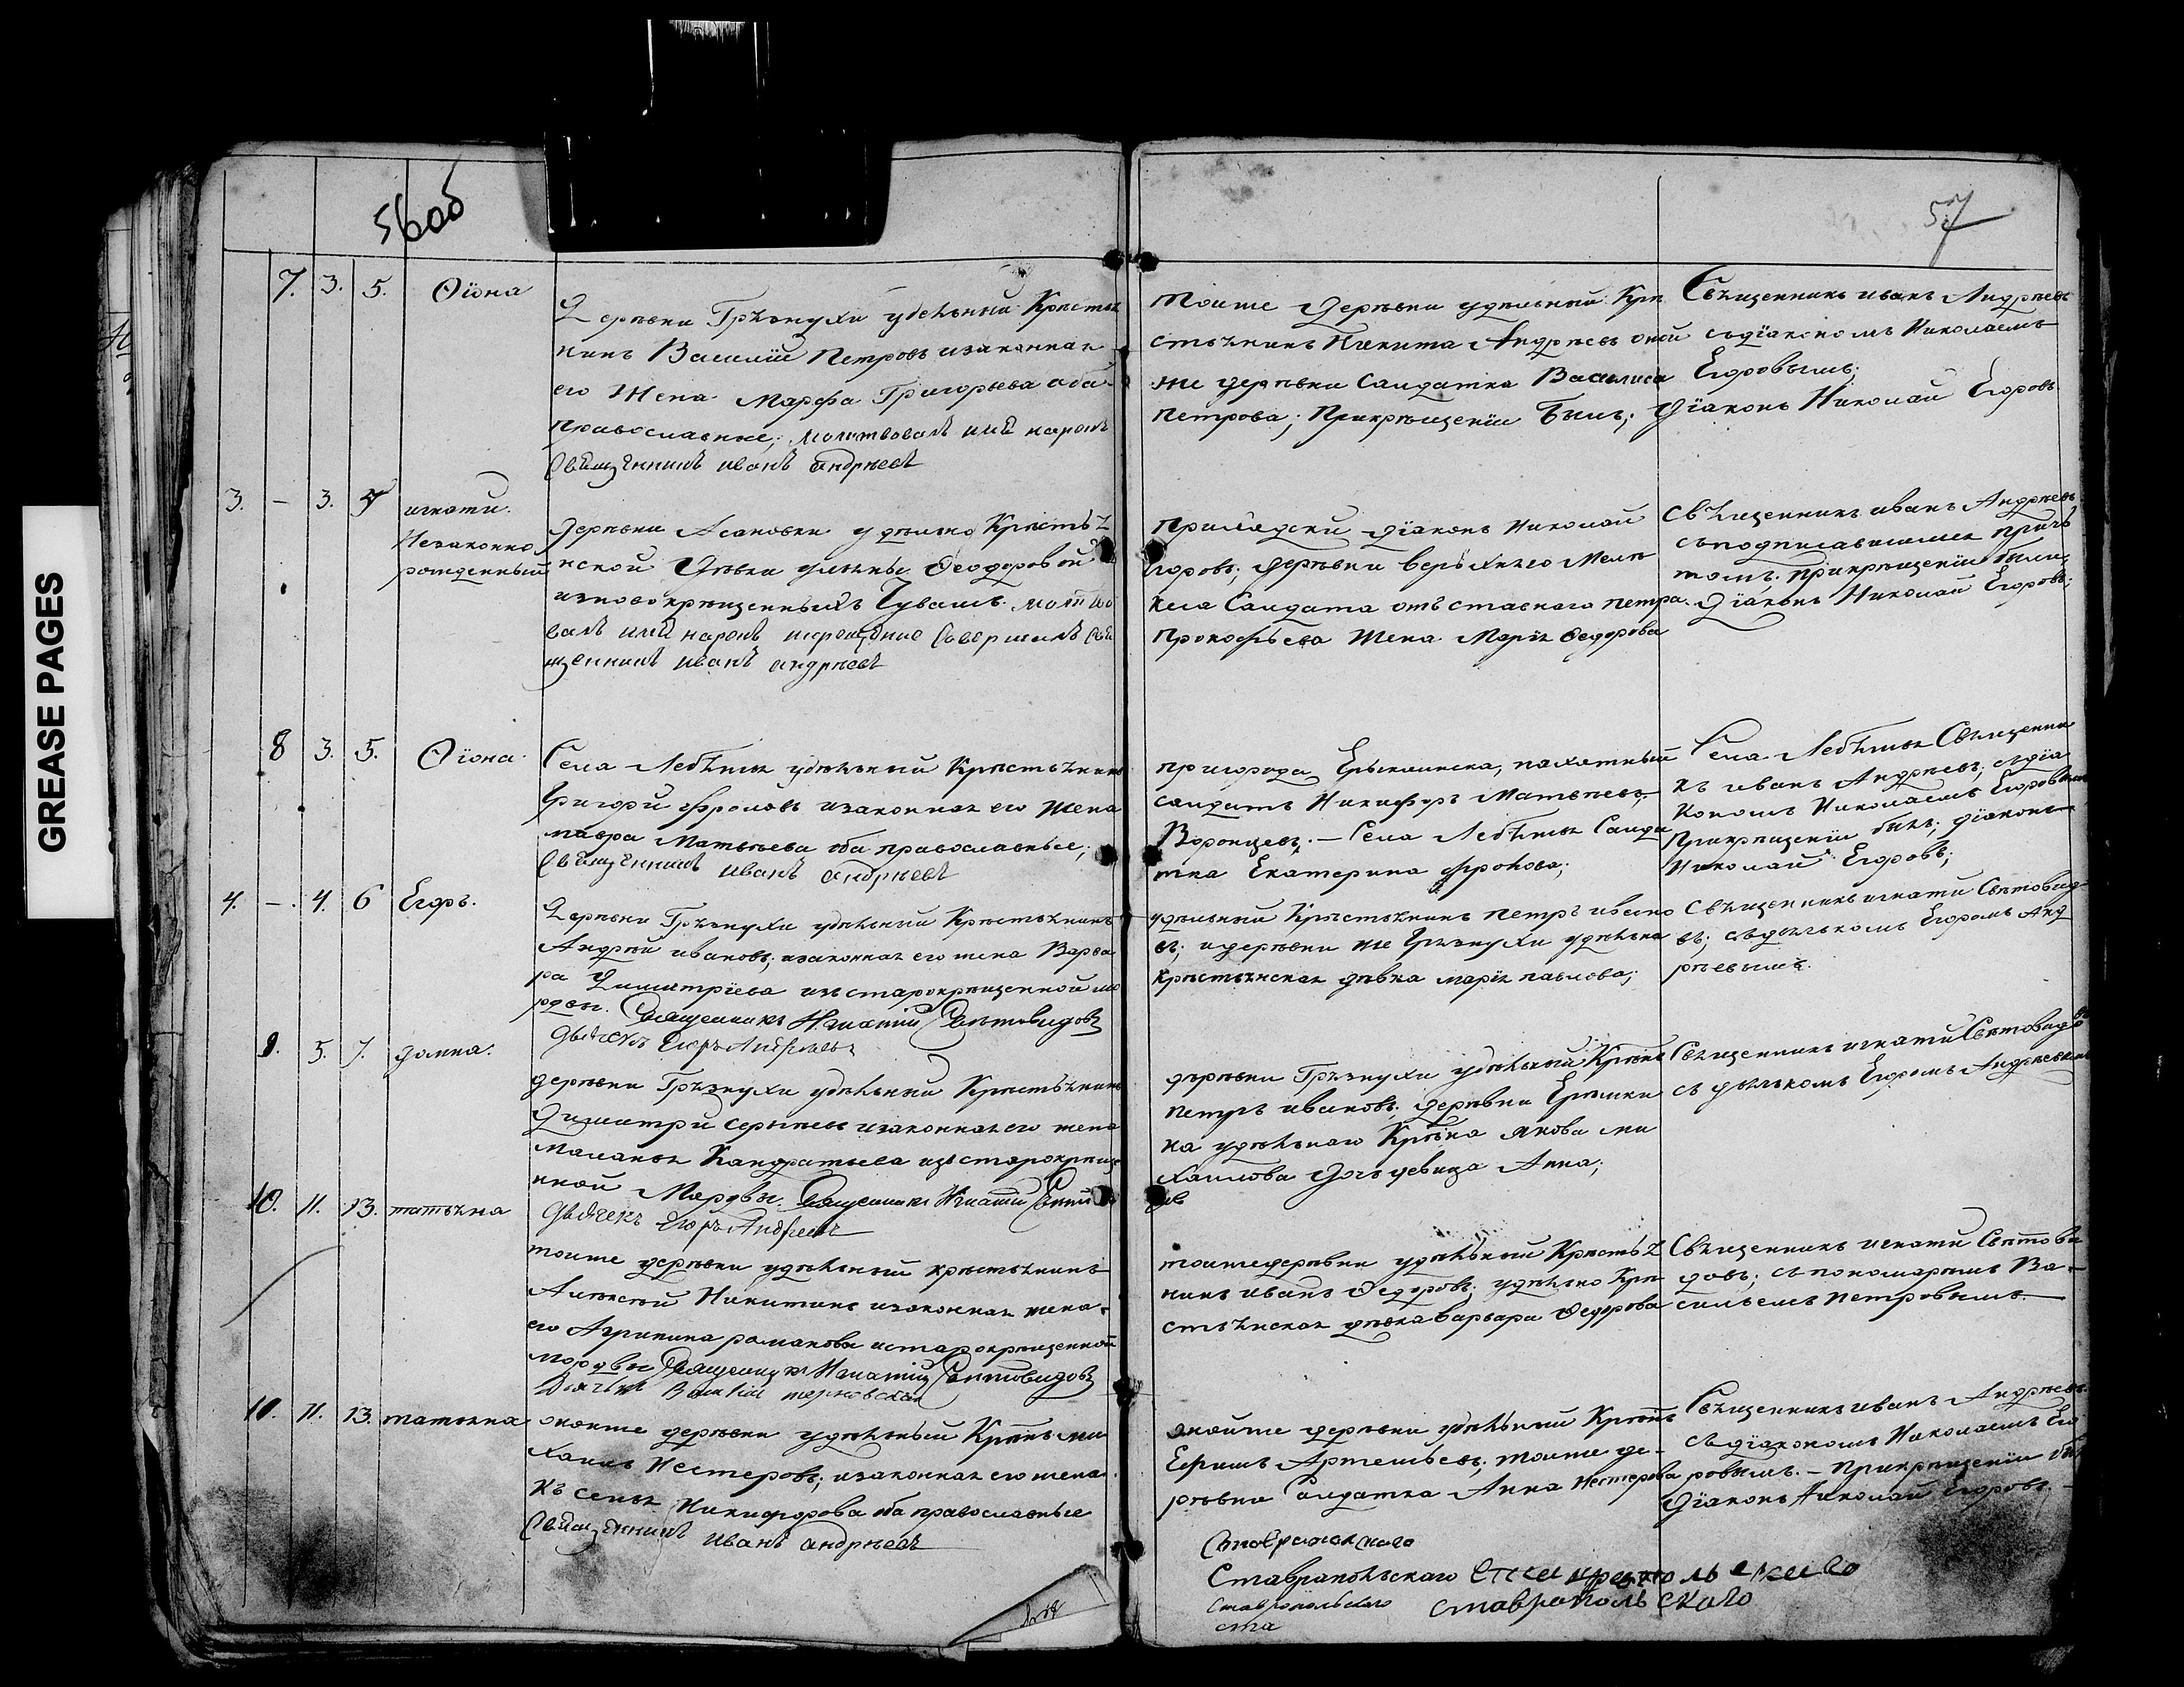 GREASE PAGES
56об
57
7. 3. 5. Ѳіона
Деревни Грѣзнухи удѣльный Крестья
нинъ Василій Петровъ изаконная
его Жена Марфа Григорьева оба
православные; молитвовалъ имя нарекъ
Священникъ иванъ андреевъ
тойже деревни удѣльный Кре
стьянинъ Никита Андреевъ оной
же деревни Салдатка Василиса
Петрова; Прикрещеніи Былъ;
Священникъ иванъ Андреевъ
съдіакономъ Николаемъ
Егоровымъ;
Діаконъ Николай Егоровъ
3. – 3. игнати.
Незаконно
рожденный
Деревни Асановки удѣльно Крестья
нской Дѣвки Ѳеодоровой
изновокрещенныхъ Чувашъ. молитво
валъ имя нарекъ икрещение Совершилъ Свя
щенникъ иванъ андреевъ
діаконъ Николай
Егоровъ; Деревни верьхняго Меле
кеса Салдата отъставнаго петра
Прокофьева Жена Марія Ѳедорова
Священникъ иванъ Андреевъ
съподписавшимся прич
томъ. Прикрещеніи были;
Діаконъ Николай Егоровъ;
8 3. 5. Ѳіона
Села Лебяжья удѣльный Крестьянинъ
Григори Фроловъ изаконная его Жена
мавра Матвѣева оба православные;
Священникъ иванъ андреевъ
пригорода Ерыклинска, пахатный
салдатъ Никифоръ Матвѣевъ
Воронцевъ. – Села Лебяжья Салда
тка Екатерина Фролова;
Села Лебяжья Священни
къ иванъ Андреевъ; съдіа
кономъ Николаемъ Егоровымъ
Прикрещеніи былъ; діаконъ
Николай Егоровъ;
4. –. 4. 6 Егоръ.
Деревни Грѣзнухи удѣльный Крестьянинъ
Андрей ивановъ; изаконная его жена Варва
ра Димитріева изъстарокрещенной мо
рдвы. Священникъ Игнатий Свѣтовидовъ
Дьячекъ Егоръ Андреевъ
удѣльный Крестьянинъ петръ ивано
въ; идеревни же Грѣзнухи удѣльна
Крестьянская дѣвка марія павлова;
Священникъ игнати Свѣтовид
въ; съдьячкомъ Егоромъ Анд
реевымъ.
9. 5. 7. домна.
деревни Грѣзнухи удѣльный Крестьянинъ
Димитри изаконная его жена
маланья Кандратьева изъстарокреще
нной Мордвы. Священникъ Игнатий Свѣтови
Дьячекъ Егоръ Андреевъ
деревни Грѣзнухи удѣльный Крестья
петръ ивановъ; деревни
на удѣльнаго Кретна якова ми
хаилова дочь девица Анна;
Священникъ игнати Свѣтовидо
съ дьячкомъ Егоромъ Андреевымъ
10. 11. 13. татьяна
тойже деревни удѣльный крестьянинъ
Алексей Никитинъ изаконная жена
его Агрипина романова истарокрещенной
мордвы Священникъ Игнатий Свѣтовидовъ
тойжедеревни удѣльный Крестья
нинъ иванъ Ѳедоровъ; удѣльно Кре
стьянская дѣвка варвара Ѳедорова
Священникъ игнати Свѣтови
довъ; съпономаремъ Ва-
сильемъ Петровымъ
11. 11. 13. татьяна
онойже деревни удѣльный Крстнъ ми
хаилъ Нестеровъ; изаконная его жена
Ксенья Никифорова оба православные
Священникъ иванъ андреевъ
онойже деревни удѣльный Крстнъ
Ефимъ Артемьевъ; тойже де-
ревни Салдатка Анна Нестерова
Священникъ иванъ Андреевъ
съдіакономъ Николаемъ Его
ровымъ. – Прикрещеніи былъ
Діаконъ Николай Егоровъ.
Ставропольскаго ставропольскаго
Ставропольскаго ставропольскаго
ста